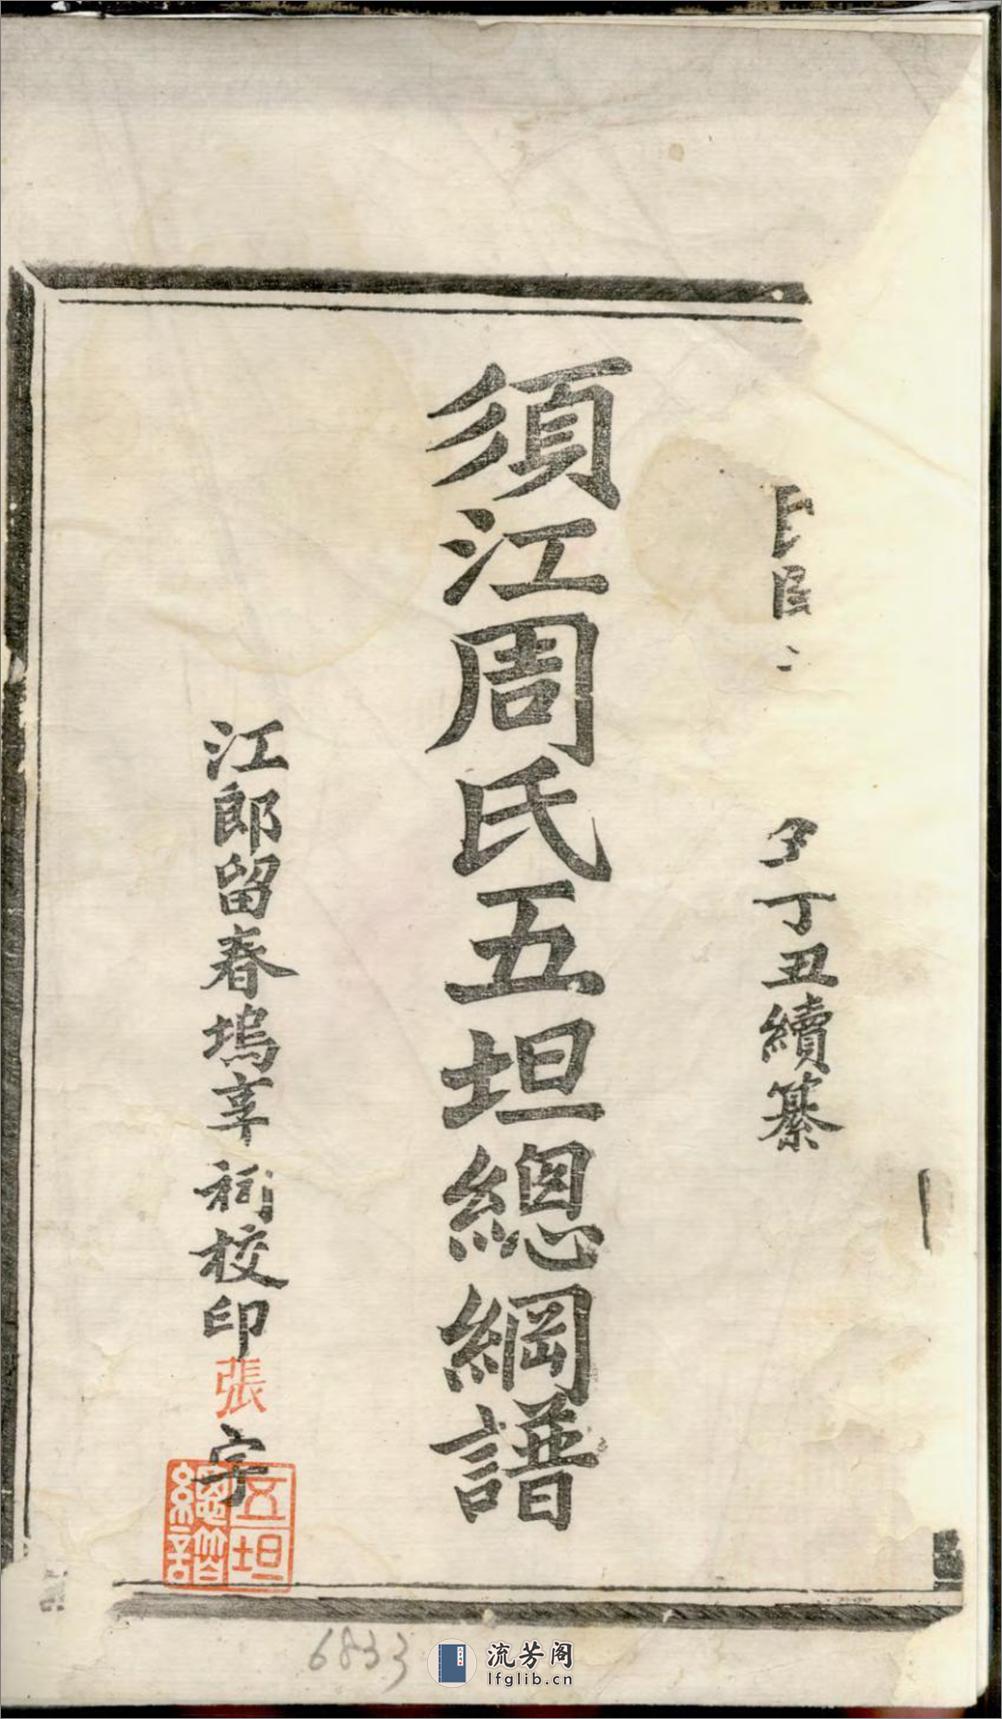 民國
丁丑續纂
須江周氏五坦總綱譜
江郎留春塢享祠校印
張字
五坦
總譜
6833
流芳阁
lfglib.cn